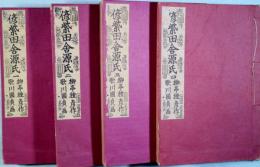 偐紫田舎源氏 一
柳亭種彦作
歌川國貞画
偐紫田舎源氏 二
柳亭種彦作
歌川國貞画
偐紫田舎源氏 三
柳亭種彦作
歌川國貞画
偐紫田舎源氏 四
柳亭種彦作
歌川國貞画